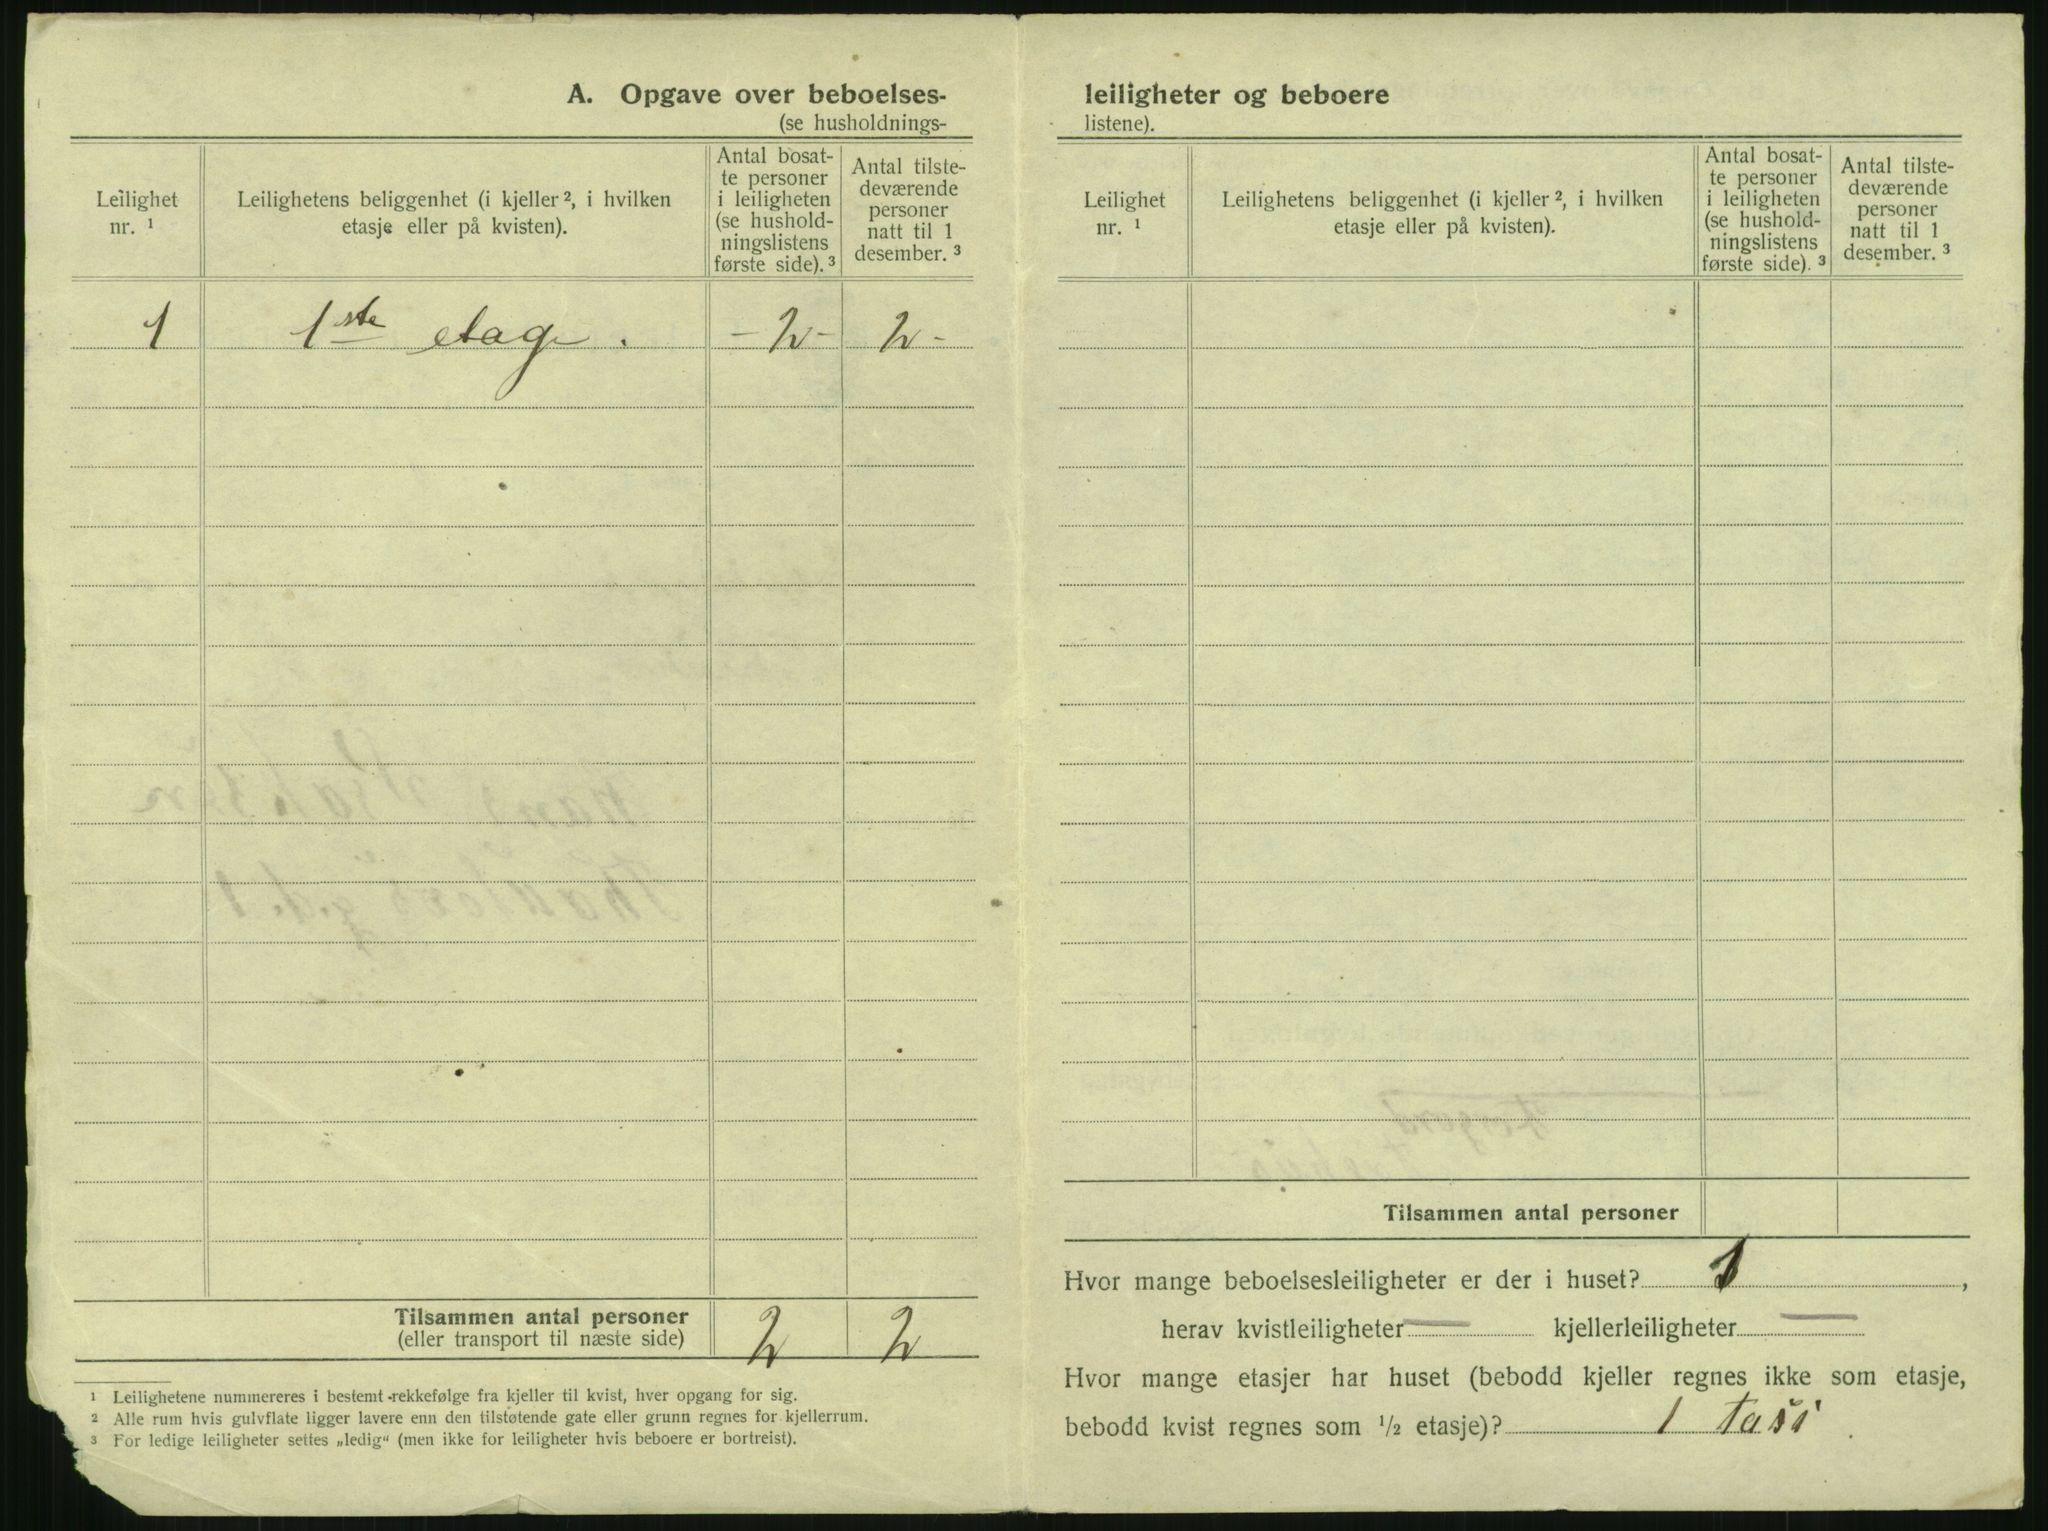 A. Opgave over beboelses-
(se husholdnings-
Leilighet
nr. ¹
Leilighetens beliggenhet (i kjeller ², i hvilken
etasje eller på kvisten).
Antal bosat-
te personer
i leiligheten
(se hushold-
ningslistens
første side). ³
Antal tilste-
deværende
personer
natt til 1
desember. ³
1 1ste etage. - 2 - 2 -
Tilsammen antal personer
(eller transport til næste side) 2 2
¹ Leilighetene nummereres i bestemt rekkefølge fra kjeller til kvist, hver opgang for sig.
² Alle rum hvis gulvflate ligger lavere enn den tilstøtende gate eller grunn regnes for kjellerrum.
³ For ledige leiligheter settes „ledig“ (men ikke for leiligheter hvis beboere er bortreist).
leiligheter og beboere
listene).
Leilighet
nr. ¹
Leilighetens beliggenhet (i kjeller ², i hvilken
etasje eller på kvisten).
Antal bosat-
te personer
i leiligheten
(se hushold-
ningslistens
første side). ³
Antal tilste-
deværende
personer
natt til 1
desember. ³
Tilsammen antal personer
Hvor mange beboelsesleiligheter er der i huset? 1,
herav kvistleiligheter — kjellerleiligheter —
Hvor mange etasjer har huset (bebodd kjeller regnes ikke som etasje,
bebodd kvist regnes som ½ etasje)? 1